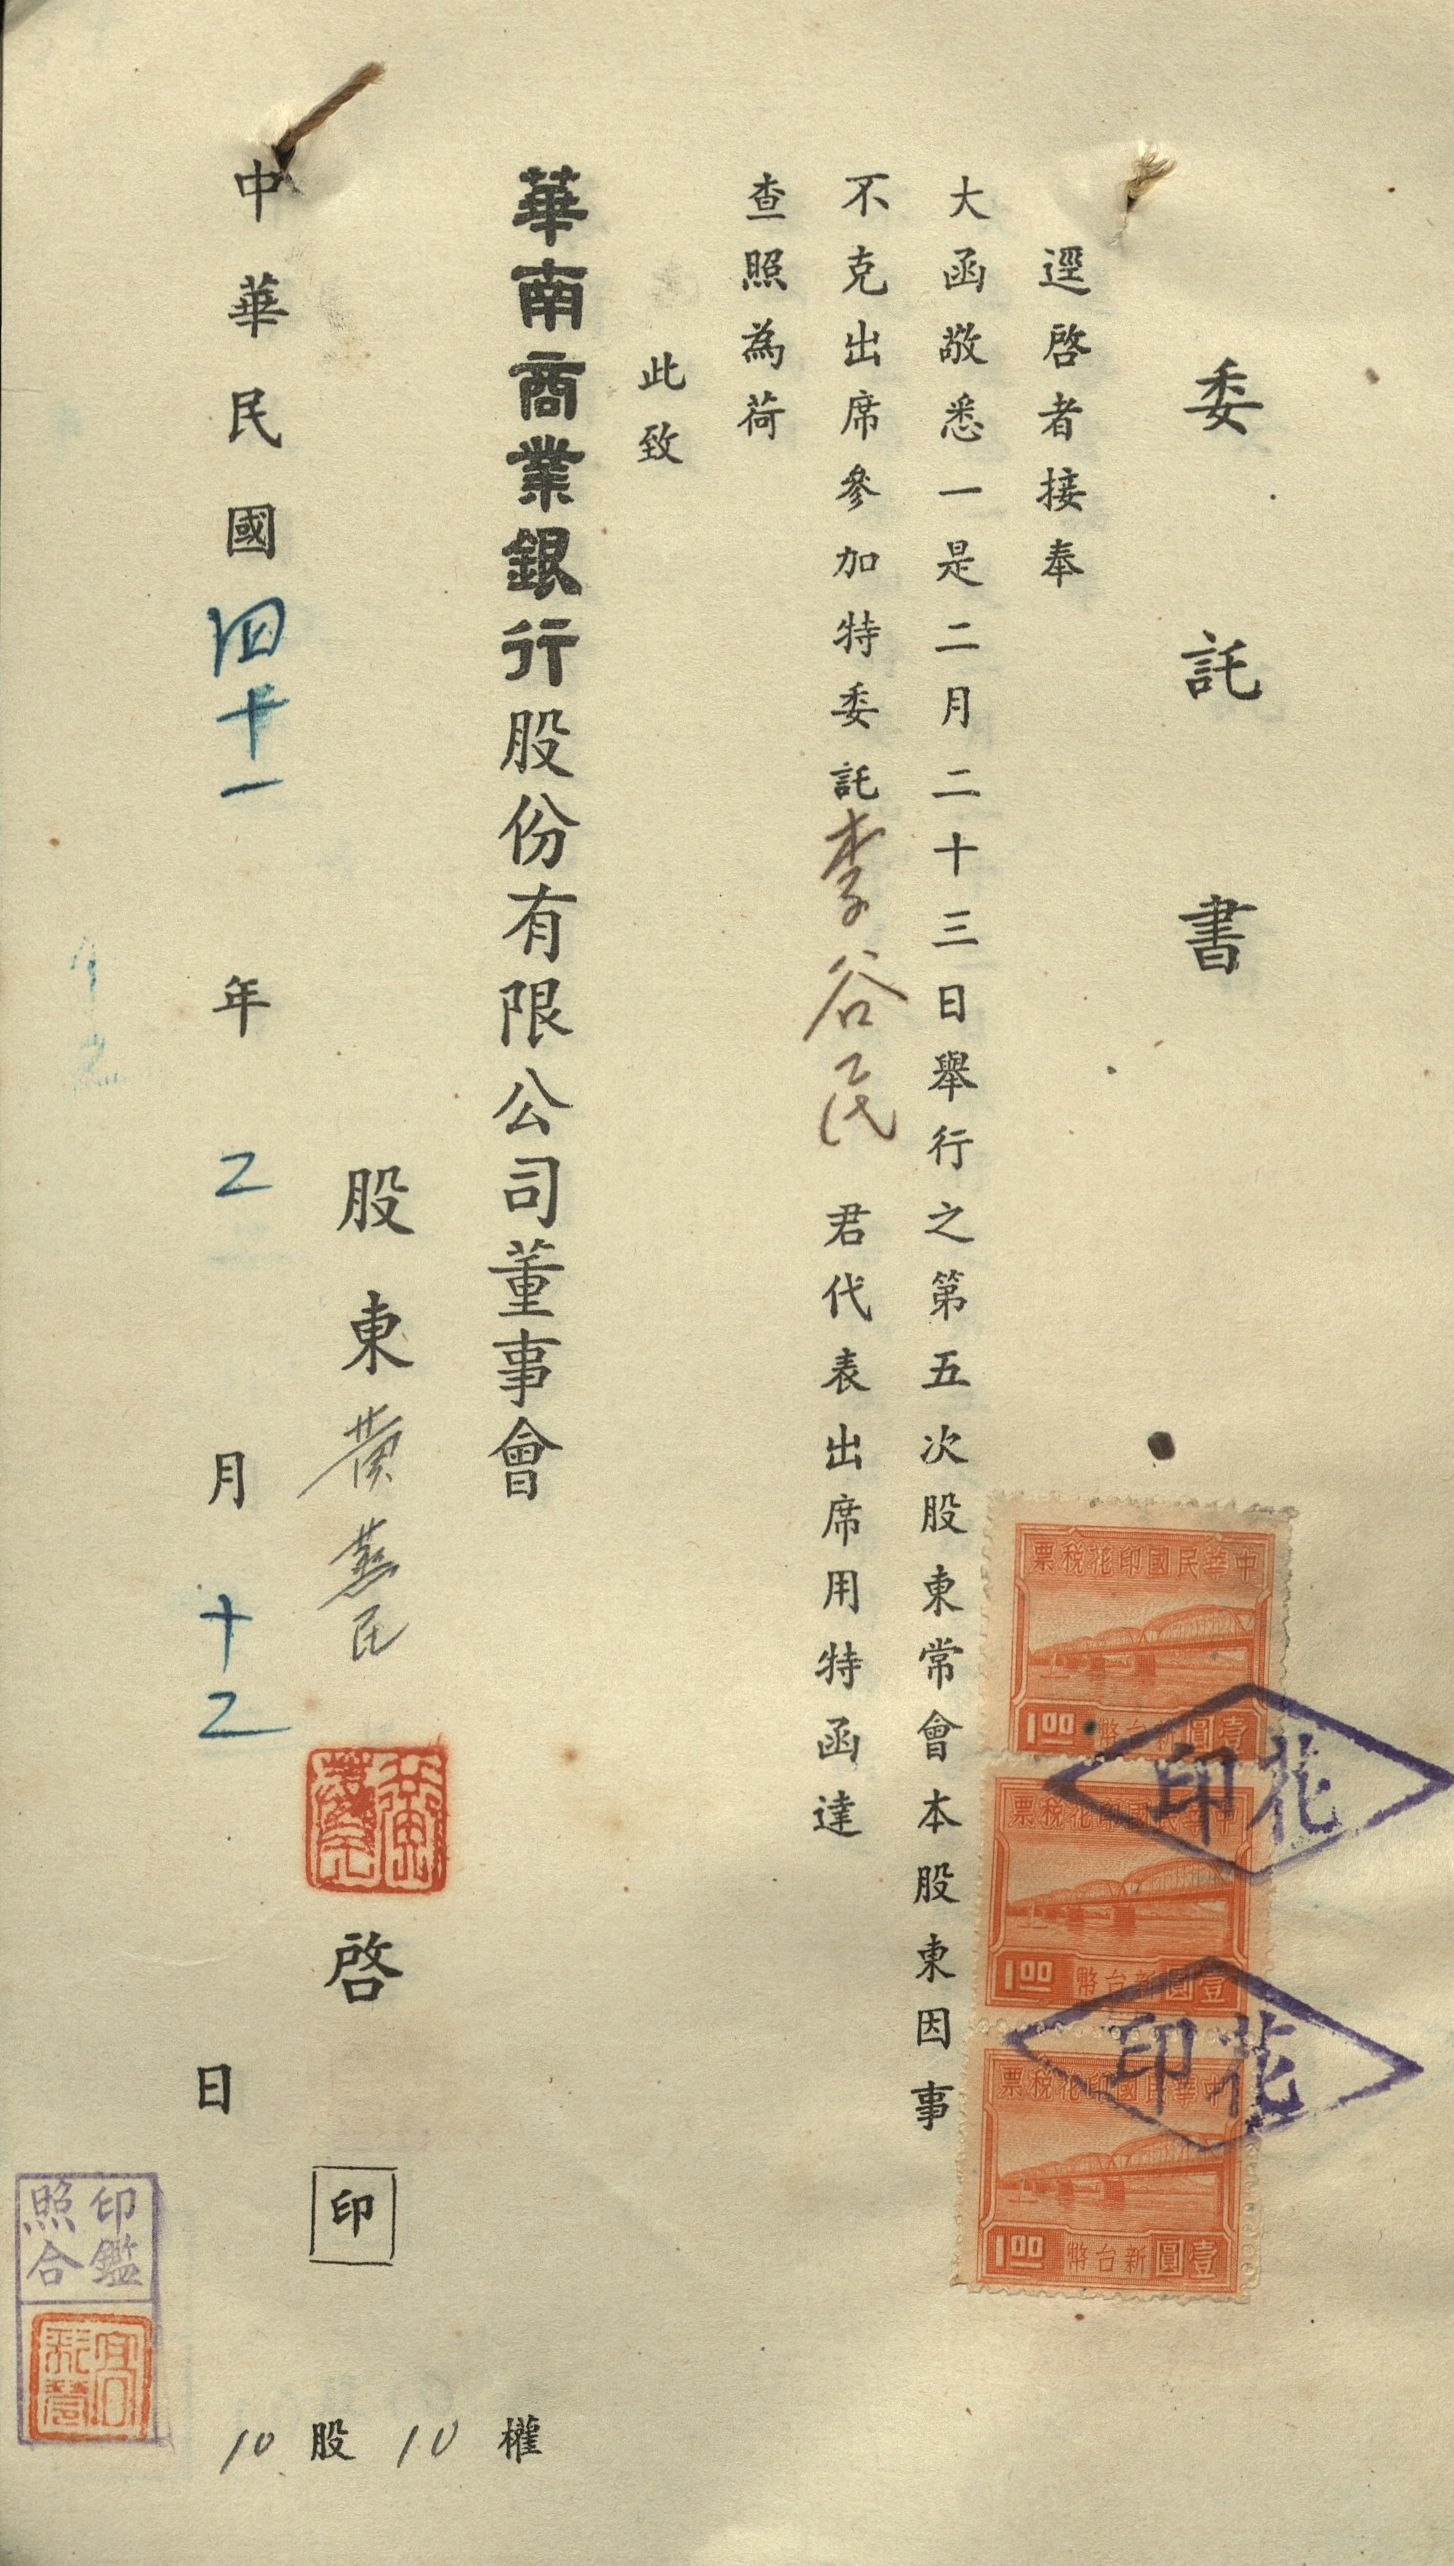 委託書
逕啓者接奉
大函敬悉一是二月二十三日舉行之第五次股東常會本股東因事
不克出席參加特委託李谷民君代表出席用特函達
查照為荷
此致
華南商業銀行股份有限公司董事會
股東黃燕民啓印
中華民國四十一年二月十二日
10股10權
中華民國印花稅票
1.00 壹圓新台幣
中華民國印花稅票
1.00 壹圓新台幣
中華民國印花稅票
1.00 壹圓新台幣
花印
花印
印鑑
照合